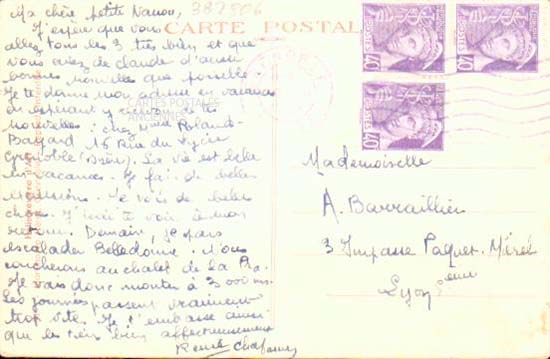 387506
CARTE POSTALE
Ma chère petite Nanou,
J'espère que vous
allez tous les 3 très bien et que
vous avez de Claude d'aussi
bonnes nouvelles que possible.
Je te donne mon adresse en vacances
en espérant y recevoir de tes
nouvelles : chez Roland-
Bayard 16 Rue du Lycée
Grenoble (Isère). La vie est belle
en vacances. Je fais de belles
excursions. Je vois de belles
choses. J'irai te voir à mon
retour. Demain, je pars
escalader Belledonne. Nous
coucherons au chalet de la Pra.
Je vais donc monter à 3 000 m.
Les journées passent vraiment
trop vite. Je t'embrasse ainsi
que les tiens bien affectueusement
Renée
CARTES POSTALES
ANCIENNES
POSTES
40
POSTES
40
POSTES
40
Mademoiselle
A. Barraillier
3 Impasse Paquet-Mérel
Lyon